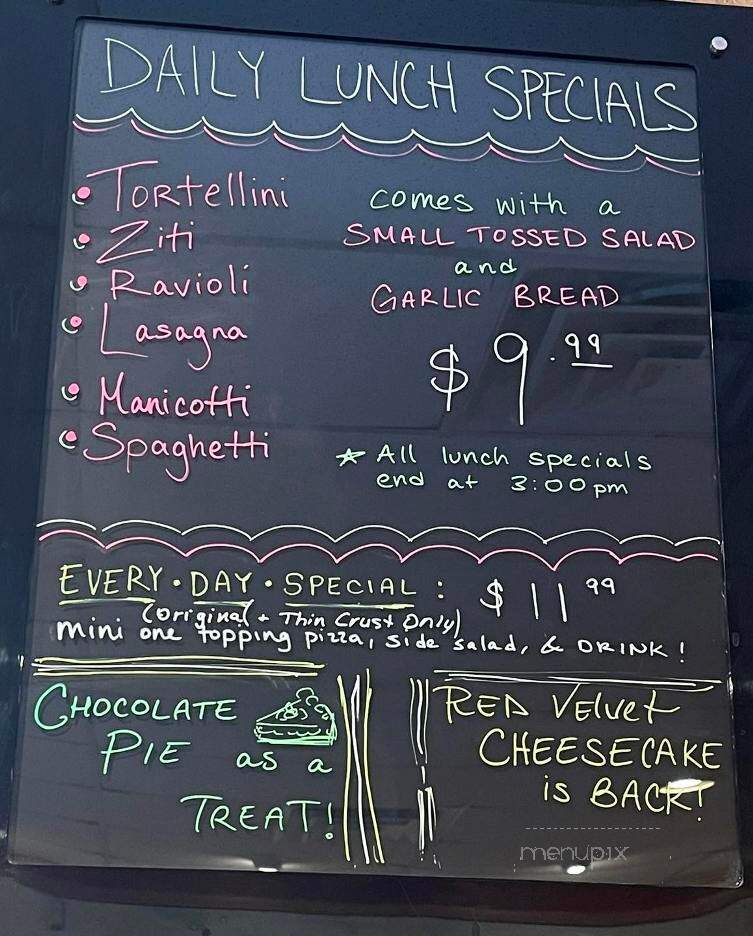 DAILY LUNCH SPECIALS
• Tortellini
• Ziti
• Ravioli
• Lasagna
• Manicotti
• Spaghetti
comes with a
SMALL TOSSED SALAD
and
GARLIC BREAD
$9.99
★ All lunch specials
end at 3:00pm
EVERY•DAY•SPECIAL: $11 99
(original + Thin Crust Only)
mini one topping pizza, side salad, & DRINK!
CHOCOLATE
PIE as a
TREAT!
RED Velvet
CHEESECAKE
is BACK!
menupix